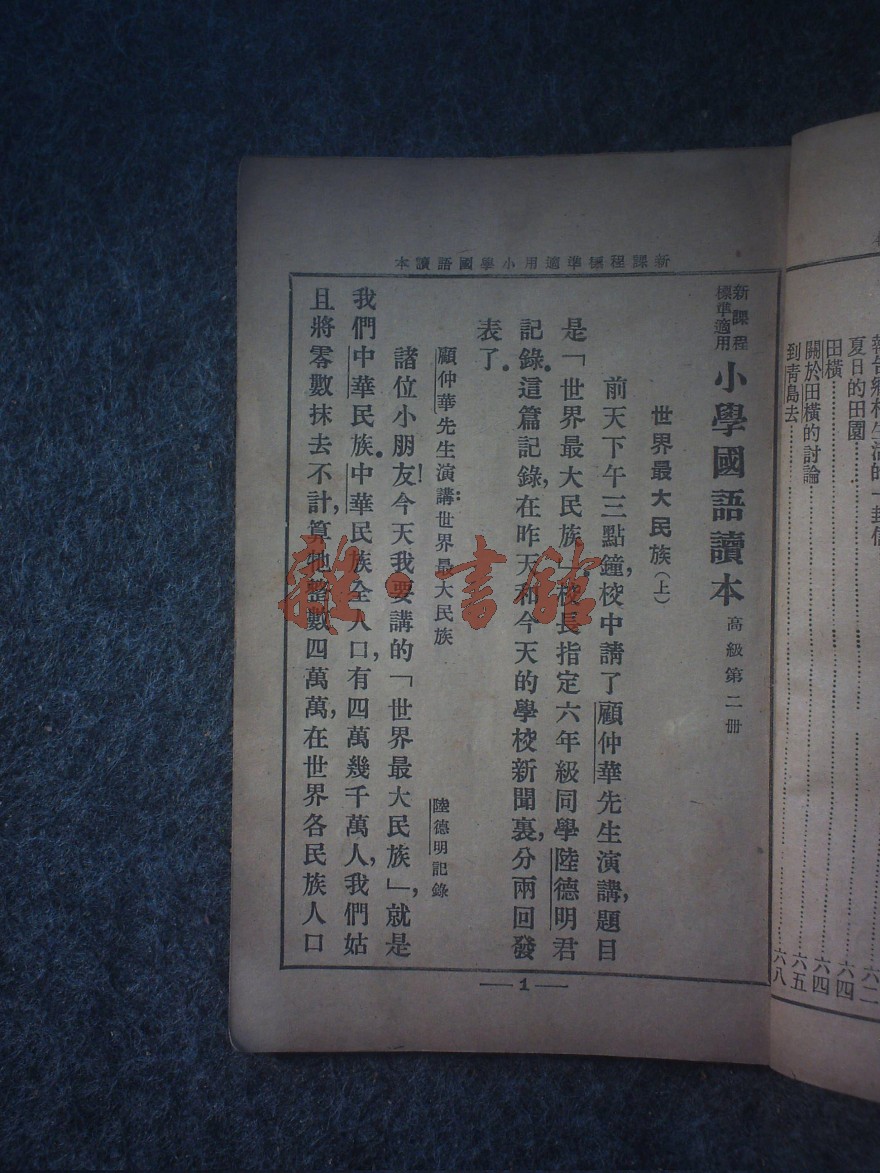 報告鄉村生活的一封信
夏日的田園……六二
田橫……六四
關於田橫的討論……六四
到靑島去……六五
六八
新課程標準適用小學國語讀本
新課程標準適用
小學國語讀本 高級第二册
世界最大民族(上)
前天下午三點鐘,校中請了顧仲華先生演講,題目
是「世界最大民族」。校長指定六年級同學陸德明君
記錄。這篇記錄,在昨天和今天的學校新聞裏,分兩回發
表了。
顧仲華先生演講:世界最大民族
陸德明記錄
諸位小朋友!今天我要講的「世界最大民族」,就是
我們中華民族。中華民族全人口,有四萬萬幾千萬人,我們姑
且將零數抹去不計,算牠整數四萬萬,在世界各民族人口
— 1 —
雜·書館